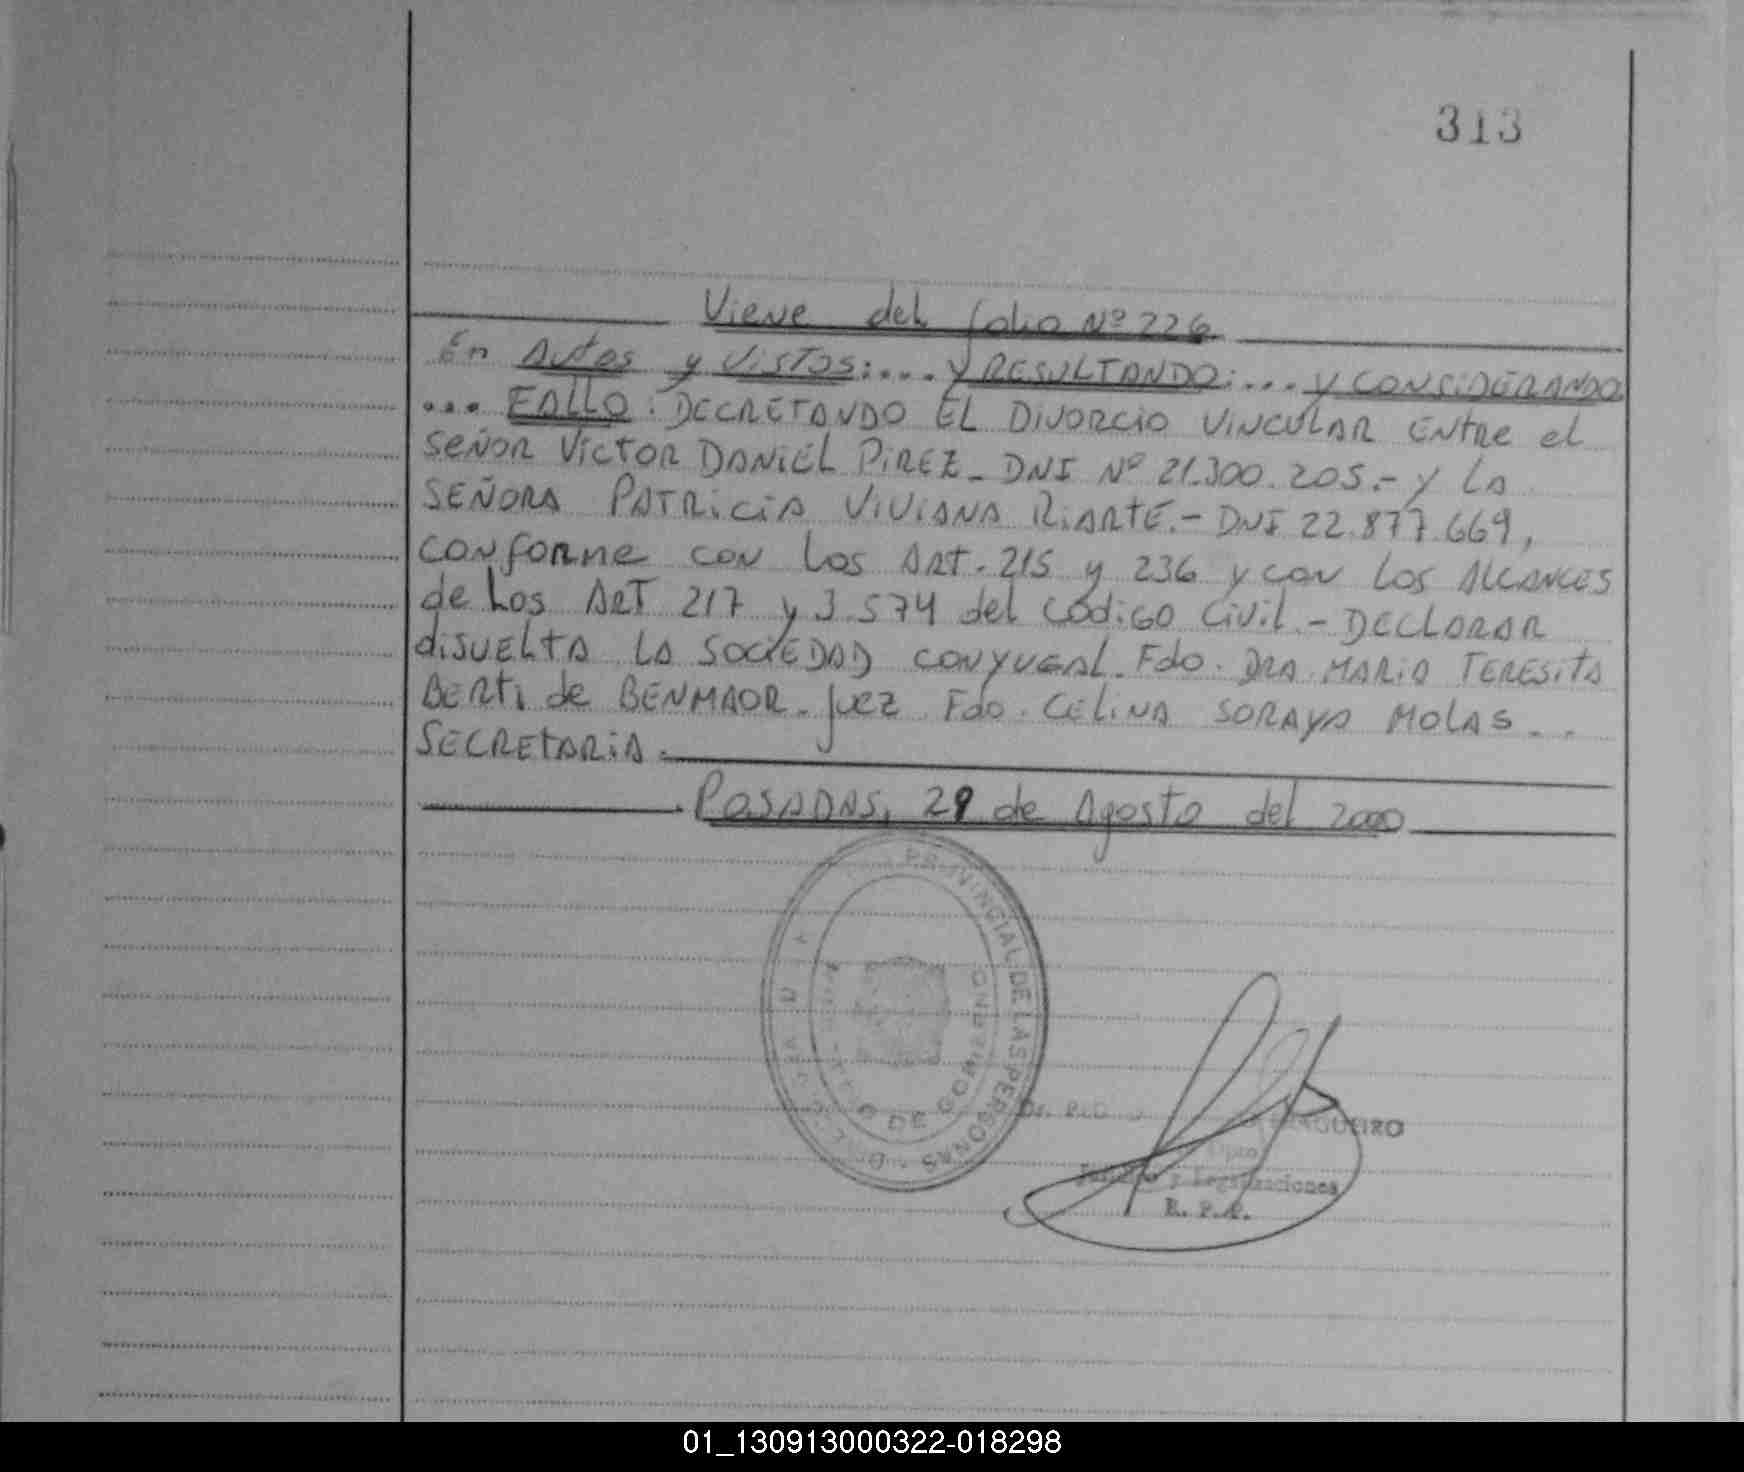 313
Viene del folio Nº 226
En Autos y Vistos:... y RESULTANDO:... y CONSIDERANDO
... FALLO: DECRETANDO EL DIVORCIO VINCULAR ENTRE el
SEÑOR VICTOR DANIEL PIREZ - DNI Nº 21.300.205.- y LA
SEÑORA PATRICIA VIVIANA RIARTE.- DNI 22.877.669,
CONFORME CON LOS ART. 215 y 236 y con LOS ALCANCES
de Los ART 217 y 3.574 del Código Civil.- DECLARAR
disuelta LA SOCIEDAD CONYUGAL. Fdo. DRA. MARIA TERESITA
BERTI de BENMAOR - Juez. Fdo. CELINA SORAYA MOLAS..
SECRETARIA.
POSADAS, 29 de Agosto del 2000
PROVINCIAL DE LAS PERSONAS
DE GOBIERNO
Dr.
Dpto.
y Legalizaciones
R. P. P.
01_130913000322-018298